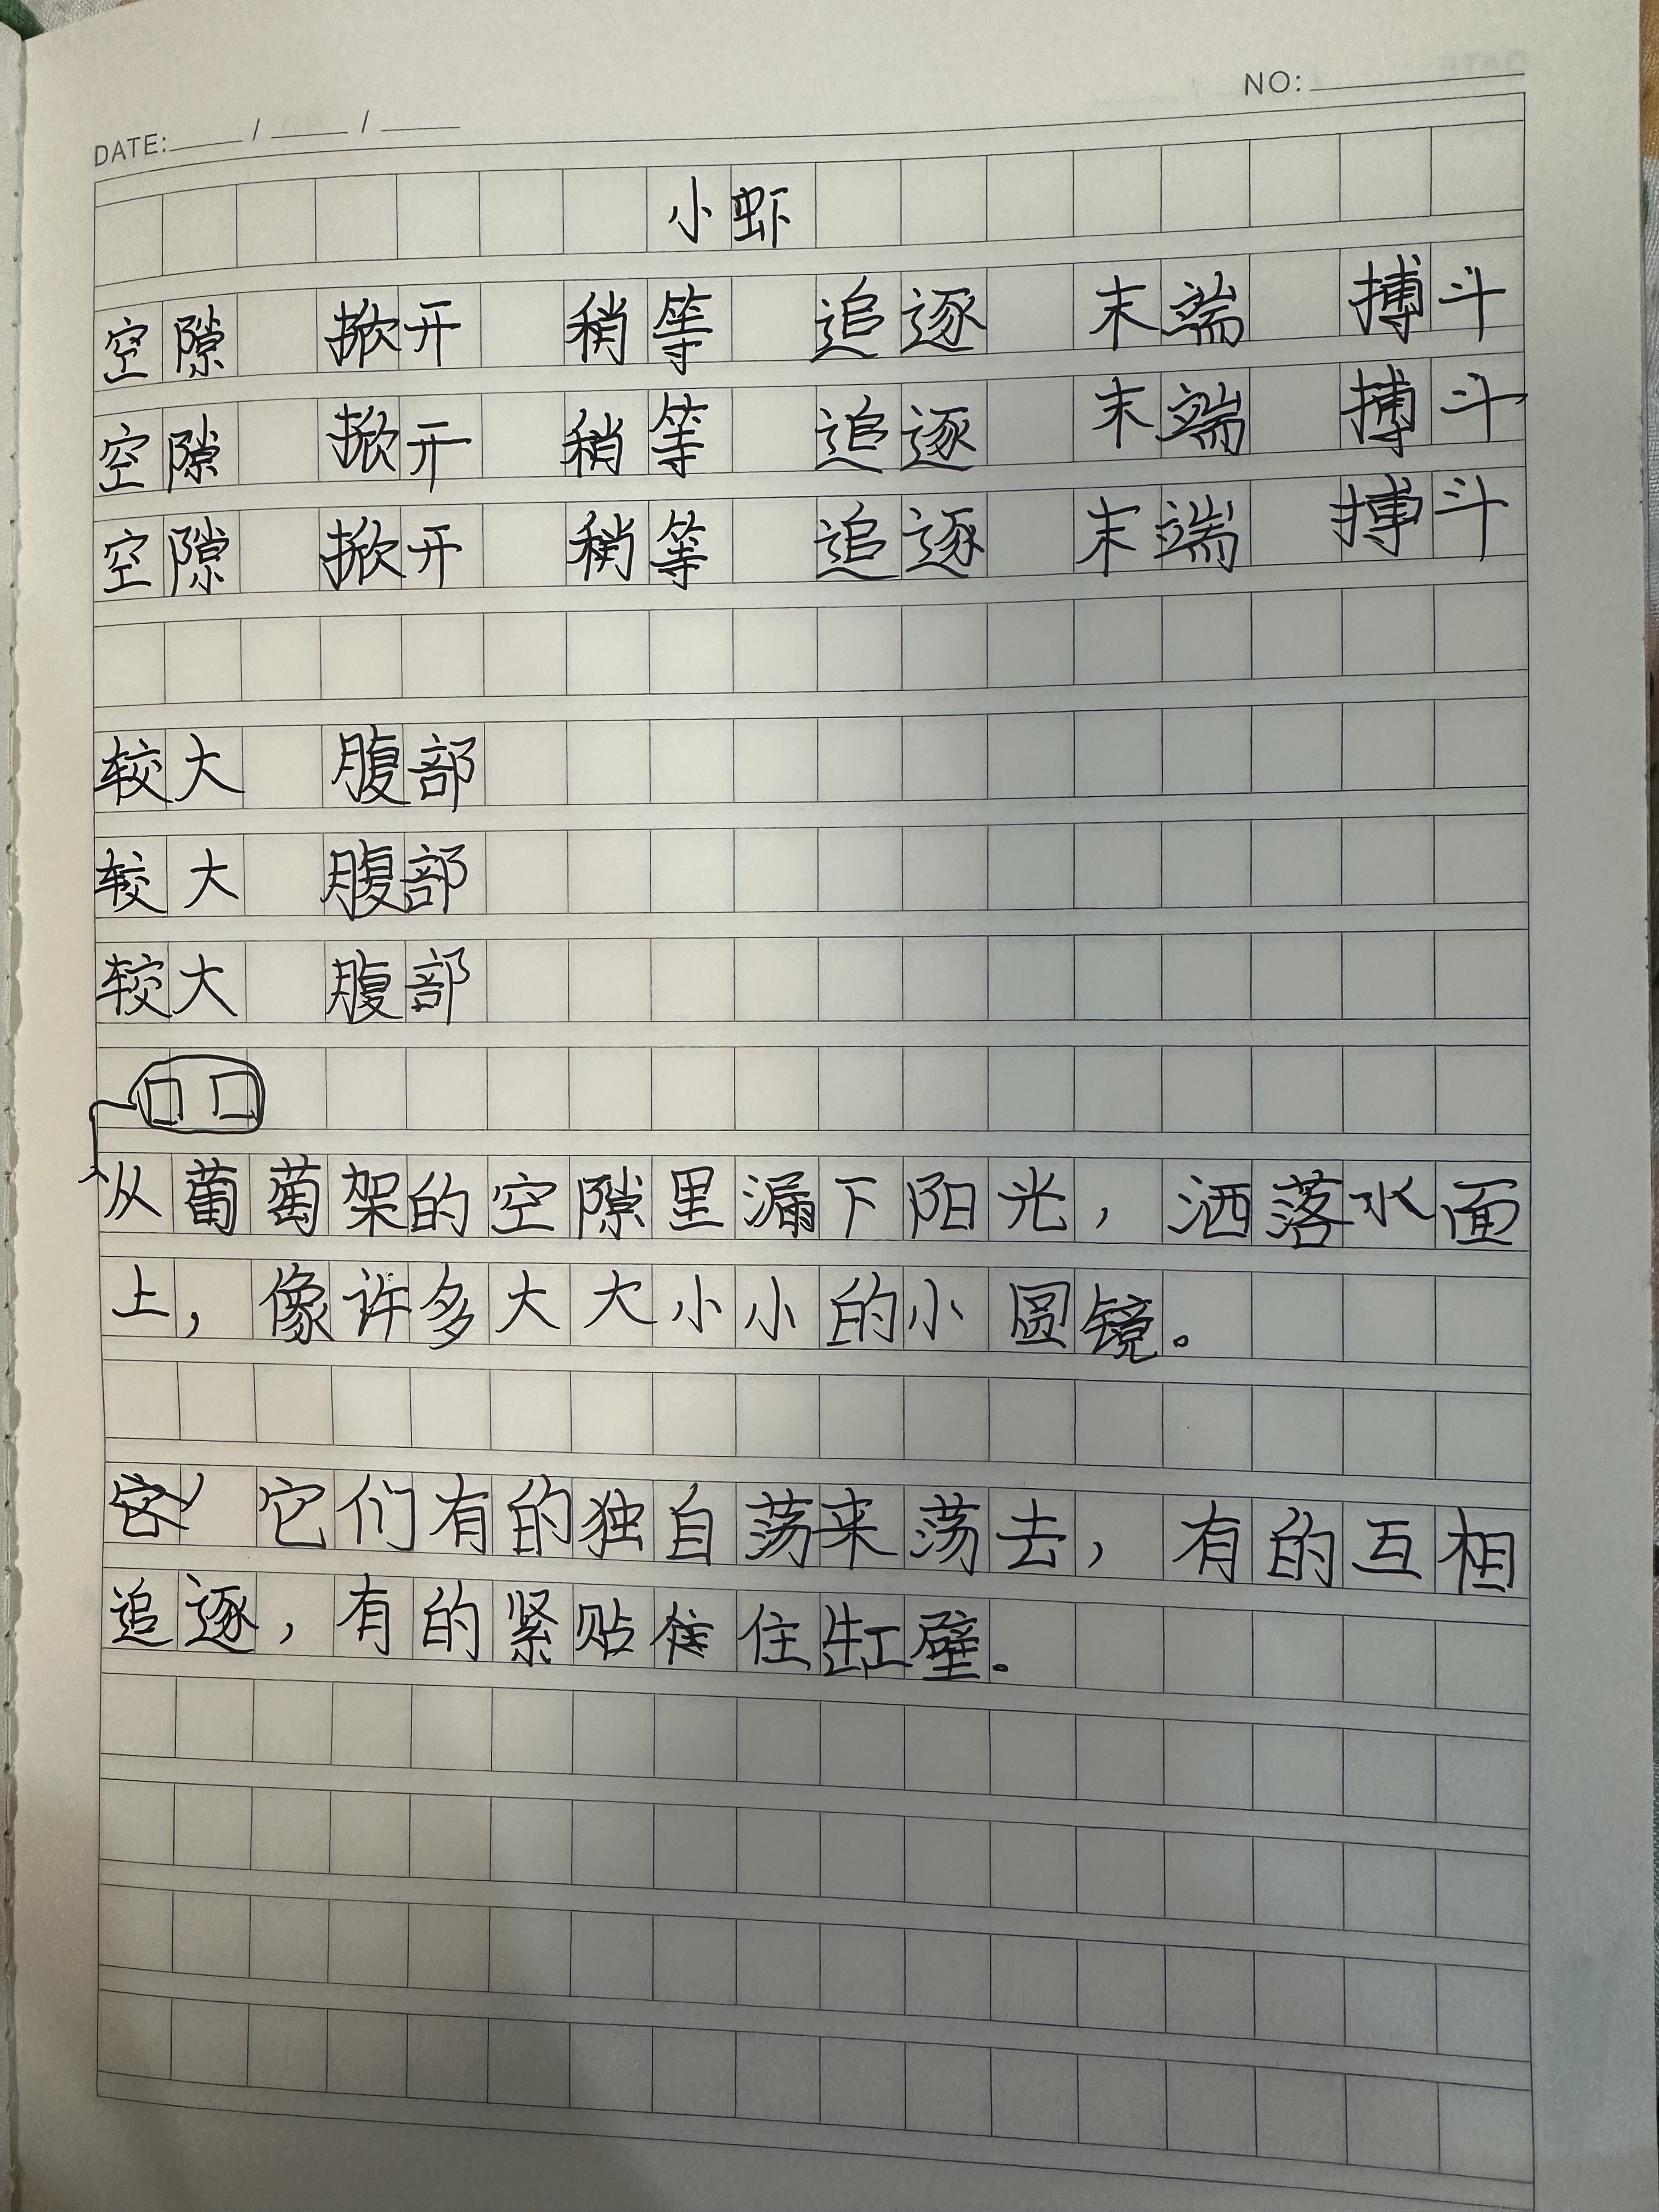 DATE: / /
NO:
小虾
空隙 掀开 稍等 追逐 末端 搏斗
空隙 掀开 稍等 追逐 末端 搏斗
空隙 掀开 稍等 追逐 末端 搏斗
较大 腹部
较大 腹部
较大 腹部
口口
从葡萄架的空隙里漏下阳光，洒落水面
上，像许多大大小小的小圆镜。
它们有的独自荡来荡去，有的互相
追逐，有的紧贴住缸壁。